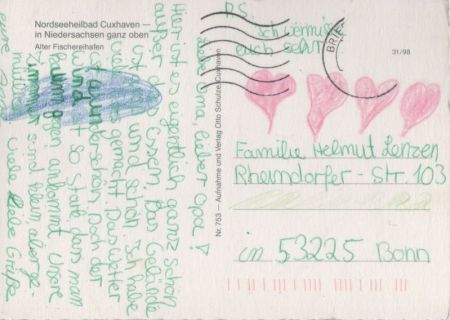 Nordseeheilbad Cuxhaven —
in Niedersachsen ganz oben
Alter Fischereihafen
31/98
Nr. 753 — Aufnahme und Verlag Otto Schulze, Cuxhaven
BRIE
P.S.
ich vermisse
euch sehr
Oma, lieber Opa!
Hier ist es eigentlich ganz schön
außer dem Essen. Das Gelände
ist und schön. Ich habe
gemacht. Das Wetter
ist wunderschön. Doch der
Wind so stark dass man
bekommt. Unsere
Zimmer sind klein aber ge-
mütlich. Viele liebe Grüße
eure
Familie Helmut Lenzen
Rheindorfer - Str. 103
in 53225 Bonn